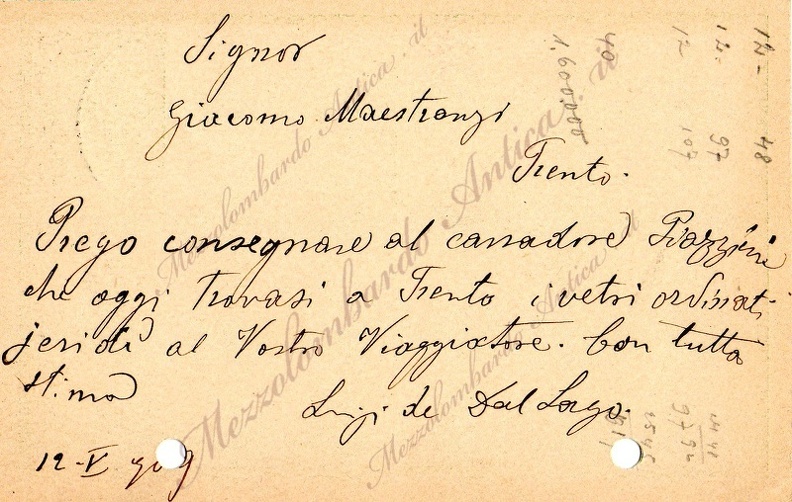 Signor
Giacomo Maestranzi
Trento.
Prego consegnare al carradore Piazzini
che oggi trovasi a Trento i vetri ordinati
jeridì al Vostro Viaggiatore. Con tutta
stima
Luigi de Dal Lago.
12-V 909
12- 48
12- 97
12 107
40
1,600.000
Mezzolombardo Antica.it
Mezzolombardo Antica.it
Mezzolombardo Antica.it